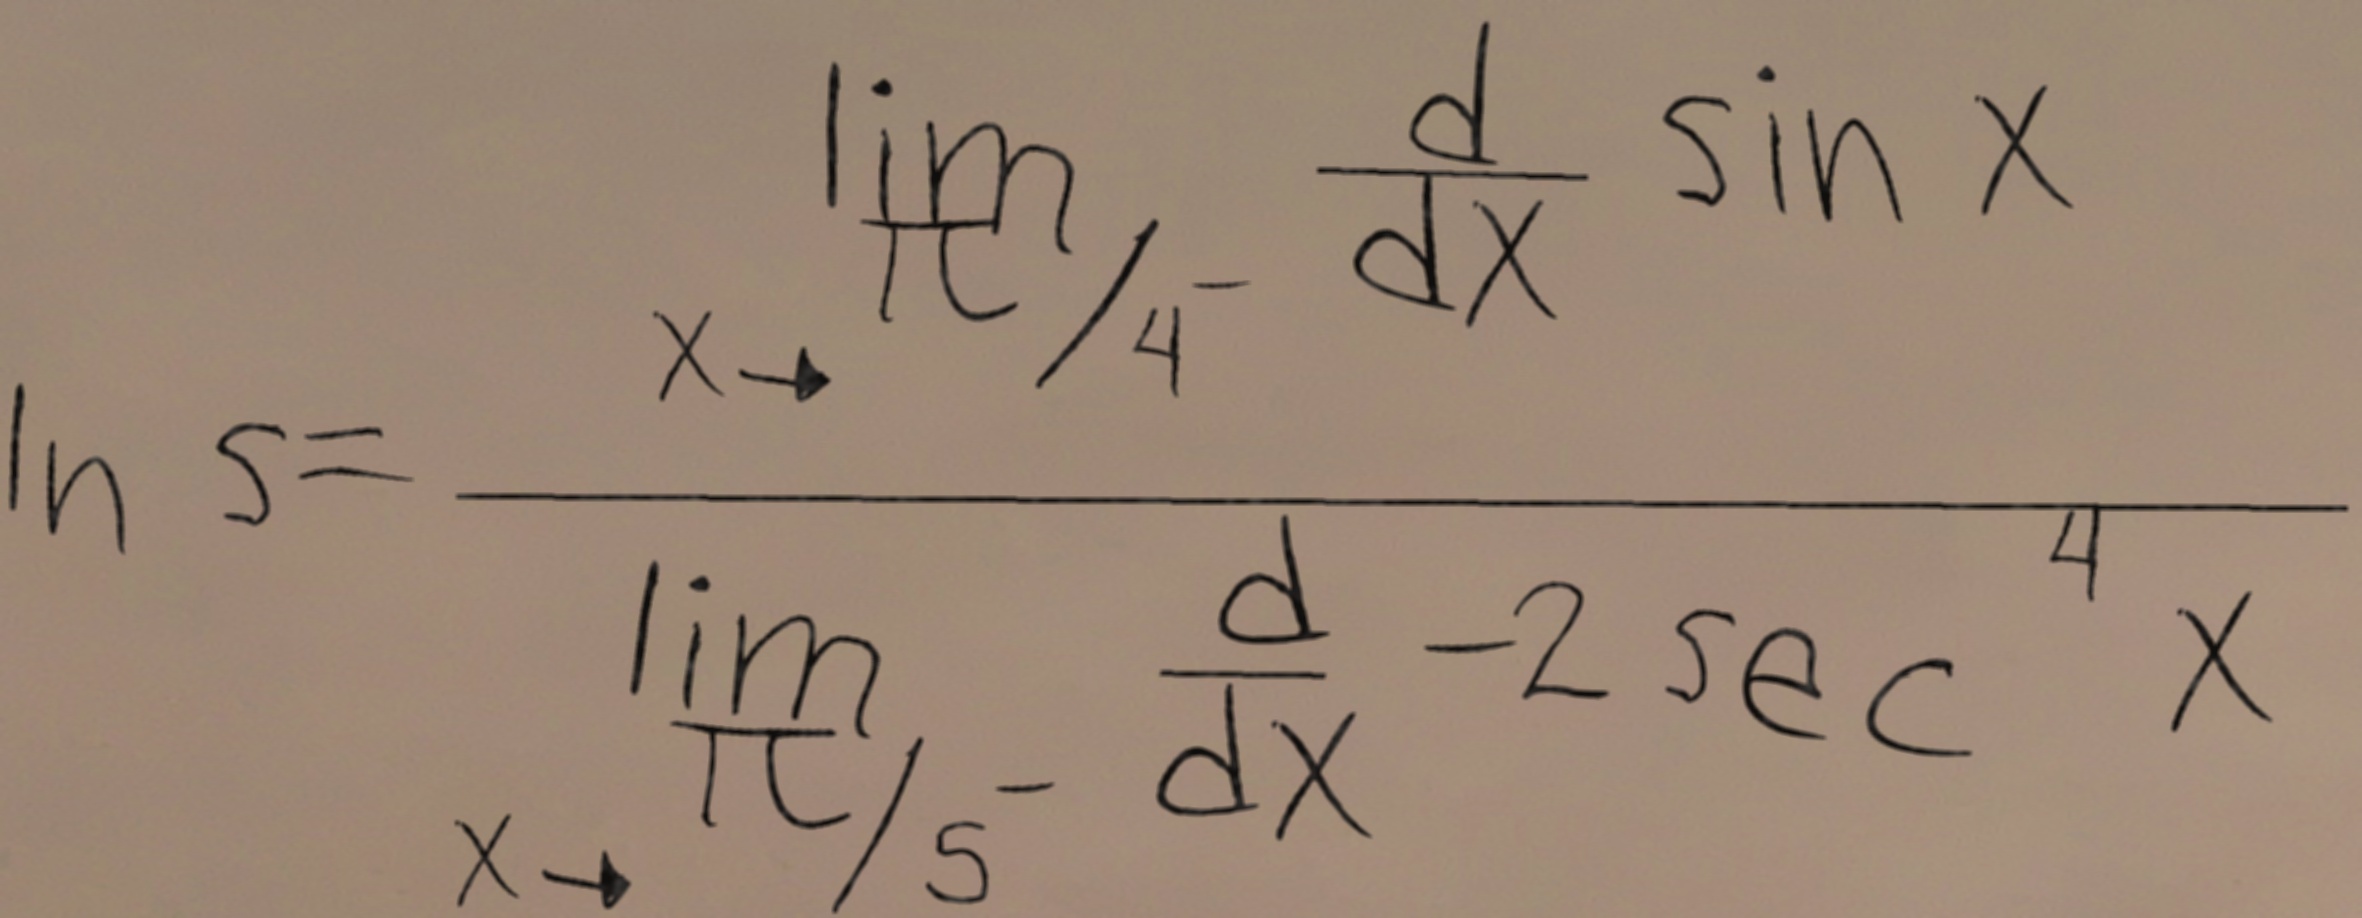 \ln s = \frac{\lim_{x \to \pi/4^-} \frac{d}{dx} \sin x}{\lim_{x \to \pi/5^-} \frac{d}{dx} -2 \sec^4 x}